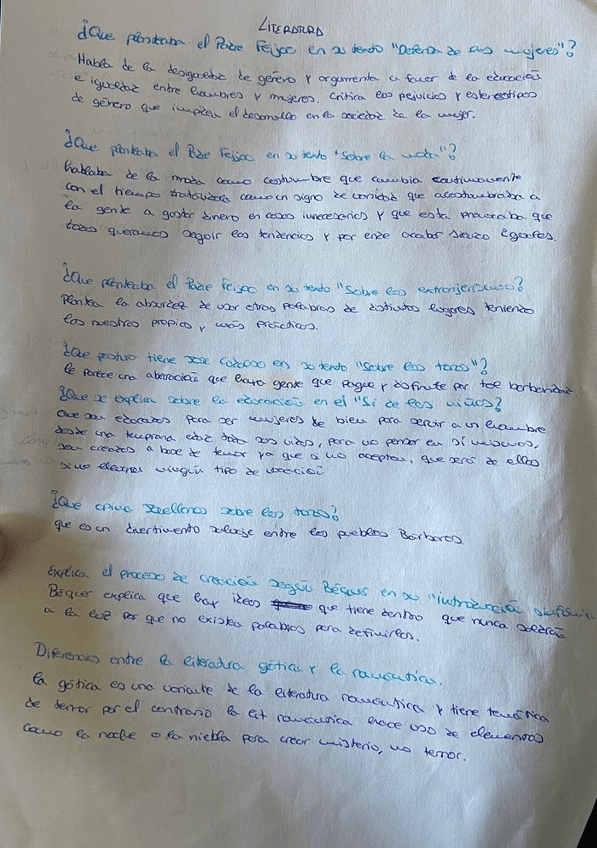 LITERATURA
¿Que planteaba el Padre Feijoo en su texto "Defensa de las mujeres"?
Habla de la desigualdad de género y argumenta a favor de la educación
e igualdad entre hombres y mujeres. Critica los pejuicios y estereotipos
de género que impiden el desarrollo en la sociedad de la mujer.
¿Que planteaba el Padre Feijoo en su texto "Sobre la moda"?
Hablaba de la moda como costumbre que cambia continuamente
con el tiempo como un signo de que acostumbraba a
la gente a gastar dinero en cosas innecesarias y que esta provocaba que
todos queramos seguir las tendencias y por ende acabar siendo iguales.
¿Que planteaba el Padre Feijoo en su texto "Sobre los extranjerismos?
Plantea la absurdez de usar otras palabras de distintos lugares teniendo
las nuestras propias y más prácticas.
¿Que postura tiene Jose Cadalso en su texto "Sobre los toros"?
le parece una aberración que haya gente que pague y disfrute por tal barbaridad.
¿Que se explica sobre la educación en el "Si de las niñas?
Que son educadas para ser mujeres de bien para servir a un hombre
desde una temprana edad toda sus vidas, para no pensar en sí mismas,
son creadas a base de temor ya que si no aceptan, que será de ellas
si no ejercen ningún tipo de vocación
¿Que opina Jovellanos sobre los toros?
que es un divertimento salvaje entre los pueblos Bárbaros
Explica el proceso de creación según Béquer en su "introducción sinfónica
Béquer explica que hay ideas que tiene dentro que nunca saldrán
a la luz por que no existen palabras para definirlas.
Diferencias entre la literatura gótica y la romántica.
la gótica es una variante de la literatura romántica y tiene temática
de terror por el contrario la lit romántica hace uso de elementos
como la noche o la niebla para crear misterio, no terror.